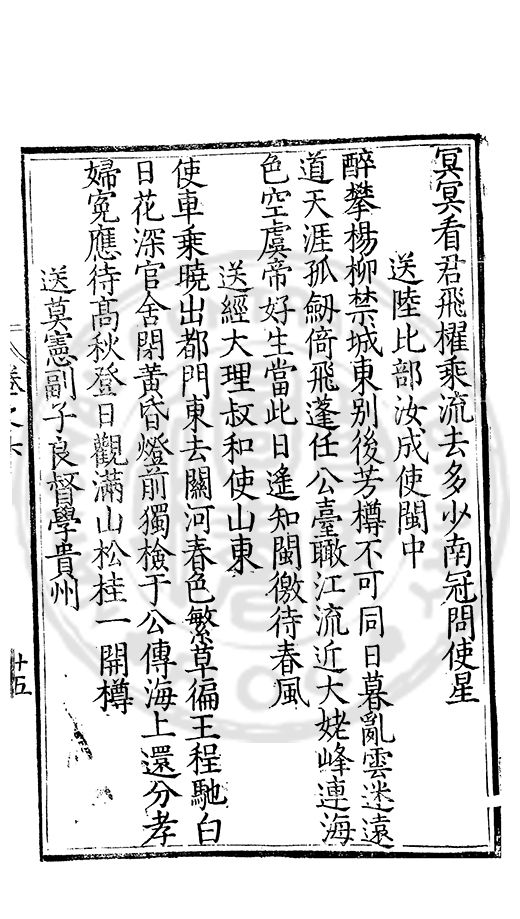 冥冥看君飛櫂乘流去多少南冠問使星
送陸比部汝成使閩中
醉攀楊柳禁城東别後芳樽不可同日暮亂雲迷遠
道天涯孤劒倚飛蓬任公臺瞰江流近大姥峰連海
色空虞帝好生當此日遙知閩徼待春風
送經大理叔和使山東
使車乘曉出都門東去關河春色繁草徧王程馳白
日花深官舍閉黃昏燈前獨檢于公傳海上還分孝
婦寃應待高秋登日觀滿山松桂一開樽
送莫憲副子良督學貴州
卷之六
十五